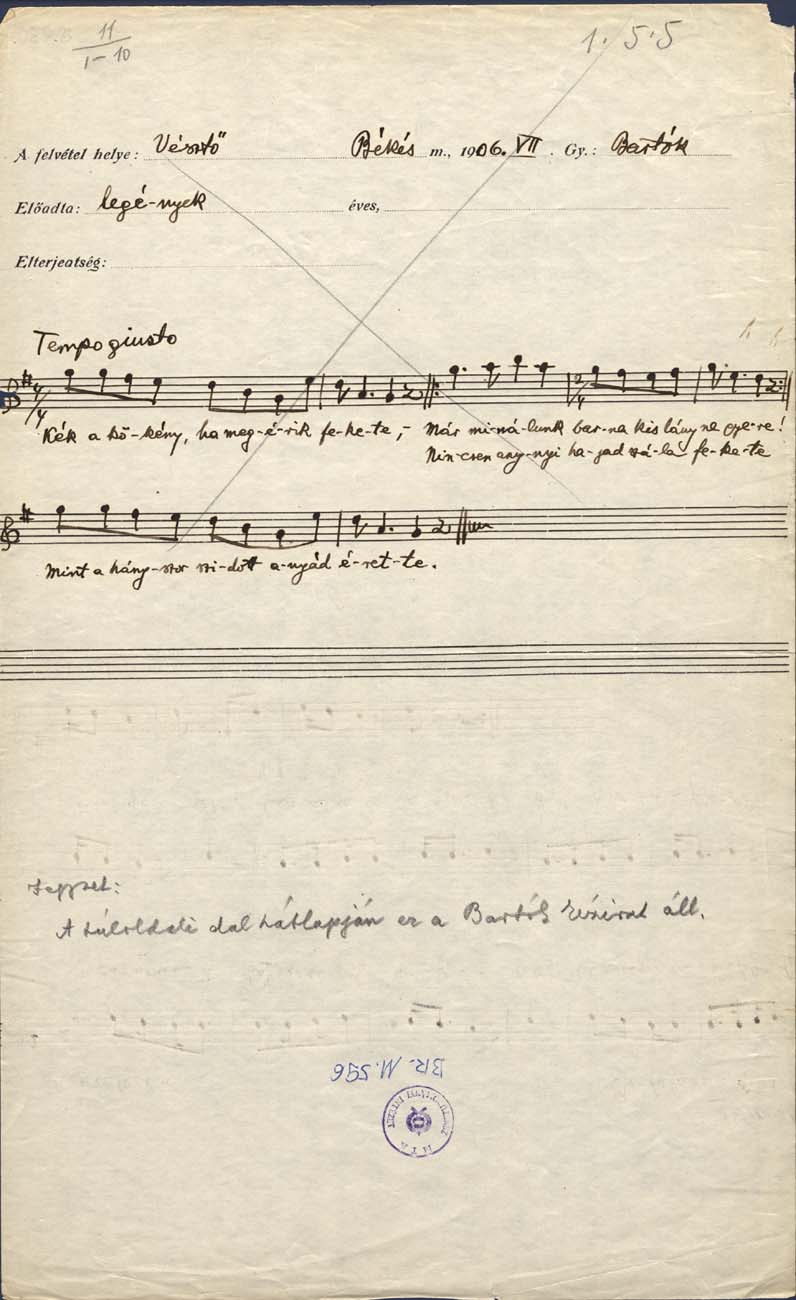 11
1-10
1. 5.5
A felvétel helye: Vésztő Békés m., 1906. VII. Gy.: Bartók
Előadta: legé-nyek éves,
Elterjedtség:
Tempo giusto
4/4 2/4
Kék a kö-kény, ha meg-é-rik fe-ke-te, - Már mi-ná-lunk bar-na kis lány ne gye-re!
Nin-csen any-nyi ha-jad szá-la fe-ke-te
Mint a hány-szor szi-dott a-nyád é-ret-te.
Jegyzet:
A túloldali dal hátlapján ez a Bartók kézirat áll.
BR. M. 596
M T A